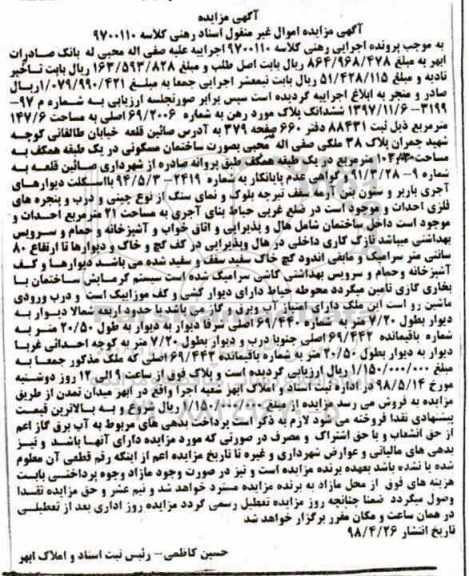 آگهی مزایده
آگهی مزایده اموال غیر منقول اسناد رهنی کلاسه ۹۷۰۰۱۱۰
به موجب پرونده اجرایی رهنی کلاسه ۹۷۰۰۱۱۰ اجراییه علیه صفی اله محبی له بانک صادرات
ابهر به مبلغ ۸۶۴/۹۶۸/۴۷۸ ریال بابت اصل طلب و مبلغ ۱۶۳/۵۹۳/۸۲۸ ریال بابت تأخیر
تادیه و مبلغ ۵۱/۴۲۸/۱۱۵ ریال بابت نیمعشر اجرایی جمعا به مبلغ ۱/۰۷۹/۹۹۰/۴۲۱ ریال
صادر و منجر به ابلاغ اجراییه گردیده است سپس برابر صورتجلسه ارزیابی به شماره م ۹۷-
۳۱۹۹-۱۳۹۷/۱۱/۶ ششدانگ پلاک مورد رهن به شماره ۶۹/۲۰۰۶ اصلی به مساحت ۱۴۷/۶
مترمربع ذیل ثبت ۸۸۴۳۱ دفتر ۶۶۰ صفحه ۳۷۹ به آدرس صائین قلعه خیابان طالقانی کوچه
شهید چمران پلاک ۳۸ ملکی صفی اله محبی بصورت ساختمان مسکونی در یک طبقه همکف به
مساحت ۱۰۳/۳۰ مترمربع در یک طبقه همکف طبق پروانه صادره از شهرداری صائین قلعه به
شماره ۹-۹۱/۳/۲۸ و گواهی عدم پایانکار به شماره ۲۴۱۹-۹۴/۵/۳ با اسکلت دیوارهای
آجری باربر و ستون بتن آرمه سقف تیرچه بلوک و نمای سنگ از نوع چینی و درب و پنجره های
فلزی احداث و موجود است در ضلع غربی حیاط بنای آجری به مساحت ۲۱ مترمربع احداث و
موجود است داخل ساختمان شامل هال و پذیرایی و اتاق خواب و آشپزخانه و حمام و سرویس
بهداشتی میباشد نازک کاری داخلی در هال وپذیرایی در کف گچ و خاک و دیوارها تا ارتفاع ۸۰
سانتی متر سرامیک و مابقی اندود گچ خاک سفید سقف و سفید شده می باشد دیوارها و کف
آشپزخانه وحمام و سرویس بهداشتی کاشی سرامیک شده است سیستم گرمایش ساختمان با
بخاری گازی تامین میگردد محوطه حیاط دارای دیوار کشی و کف موزاییک است و درب ورودی
ماشین رو است این ملک دارای امتیاز آب وبرق و گاز می باشد با حدود اربعه شمالا دیوار به
دیوار بطول ۷/۲۰ متر به شماره ۶۹/۴۴۰ اصلی شرقا دیوار به دیوار به طول ۲۰/۵۰ متر به
شماره باقیمانده ۶۹/۴۴۲ اصلی جنوبا درب و دیوار بطول ۷/۲۰ متر به کوچه احداثی غربا
دیوار به دیوار بطول ۲۰/۵۰ متر به شماره باقیمانده ۶۹/۴۴۲ اصلی که ملک مذکور جمعا به
مبلغ ۱/۱۵۰/۰۰۰/۰۰۰ ریال ارزیابی گردیده است و پلاک فوق از ساعت ۹ الی ۱۲ روز دوشنبه
مورخ ۹۸/۵/۱۴ در اداره ثبت اسناد و املاک ابهر شعبه اجرا واقع در ابهر میدان تمدن از طریق
مزایده به فروش می رسد مزایده از مبلغ ۱/۱۵۰/۰۰۰/۰۰۰ ریال شروع و به بالاترین قیمت
پیشنهادی نقدا فروخته می شود لازم به ذکر است پرداخت بدهی های مربوط به آب برق گاز اعم
از حق انشعاب و یا حق اشتراک و مصرف در صورتی که مورد مزایده دارای آنها باشد و نیز
بدهی های مالیاتی و عوارض شهرداری و غیره تا تاریخ مزایده اعم از اینکه رقم قطعی آن معلوم
شده یا نشده باشد بعهده برنده مزایده است و نیز در صورت وجود مازاد وجوه پرداختی بابت
هزینه های فوق از محل مازاد به برنده مزایده مسترد خواهد شد و نیم عشر و حق مزایده نقدا
وصول میگردد ضمنا چنانچه روز مزایده تعطیل رسمی گردد مزایده روز اداری بعد از تعطیلی
در همان ساعت و مکان مقرر برگزار خواهد شد
تاریخ انتشار ۹۸/۴/۲۶
حسین کاظمی- رئیس ثبت اسناد و املاک ابهر